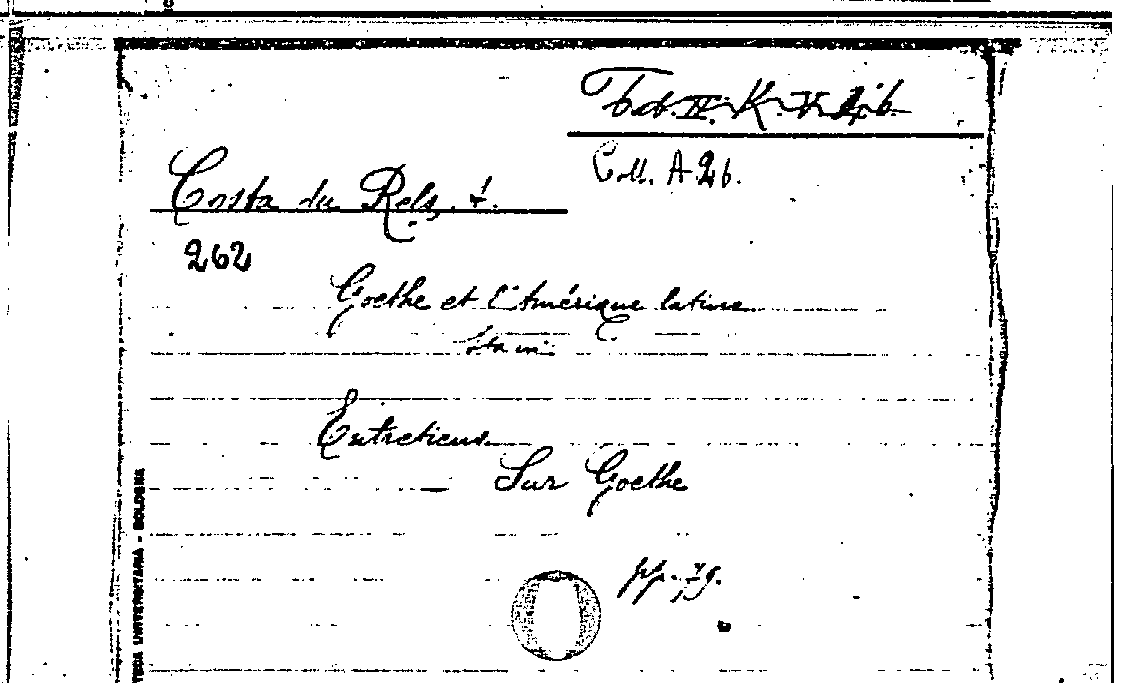 Tab. II. K.
Coll. A 26.
Costa du Rels, A.
262
Goethe et l'Amérique latine
sta in:
Entretiens
Sur Goethe
pp. 79.
TECA UNIVERSITARIA - BOLOGNA